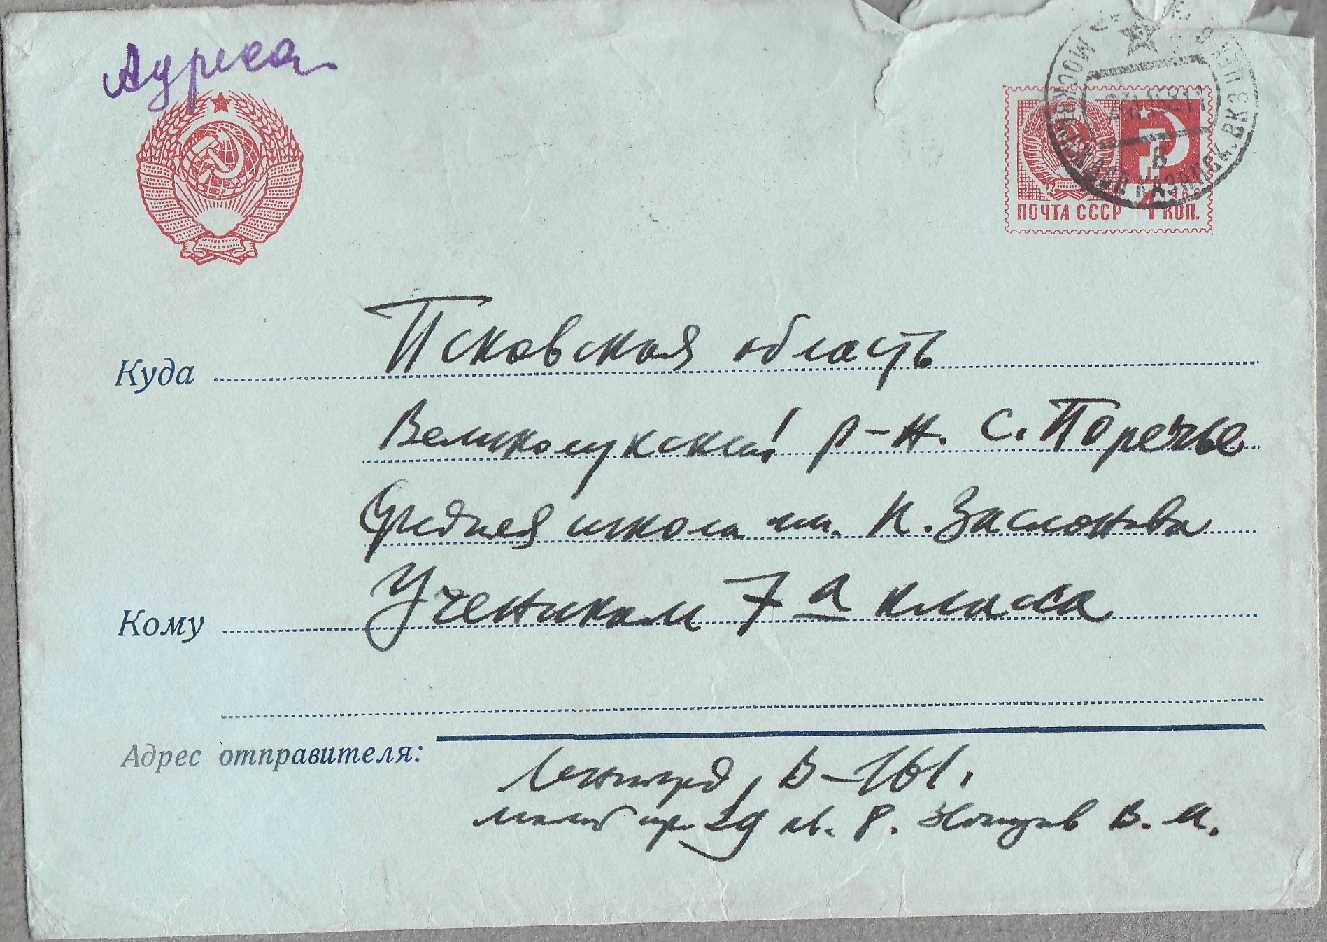 Адреса
ПОЧТА СССР 4 КОП.
Куда Псковская область
Великолукский р-н. с. Поречье
Средняя школа им. К. Заслонова
Кому Ученикам 7 а класса
Адрес отправителя:
Ленинград, В-161.
кв. 8. В. И.